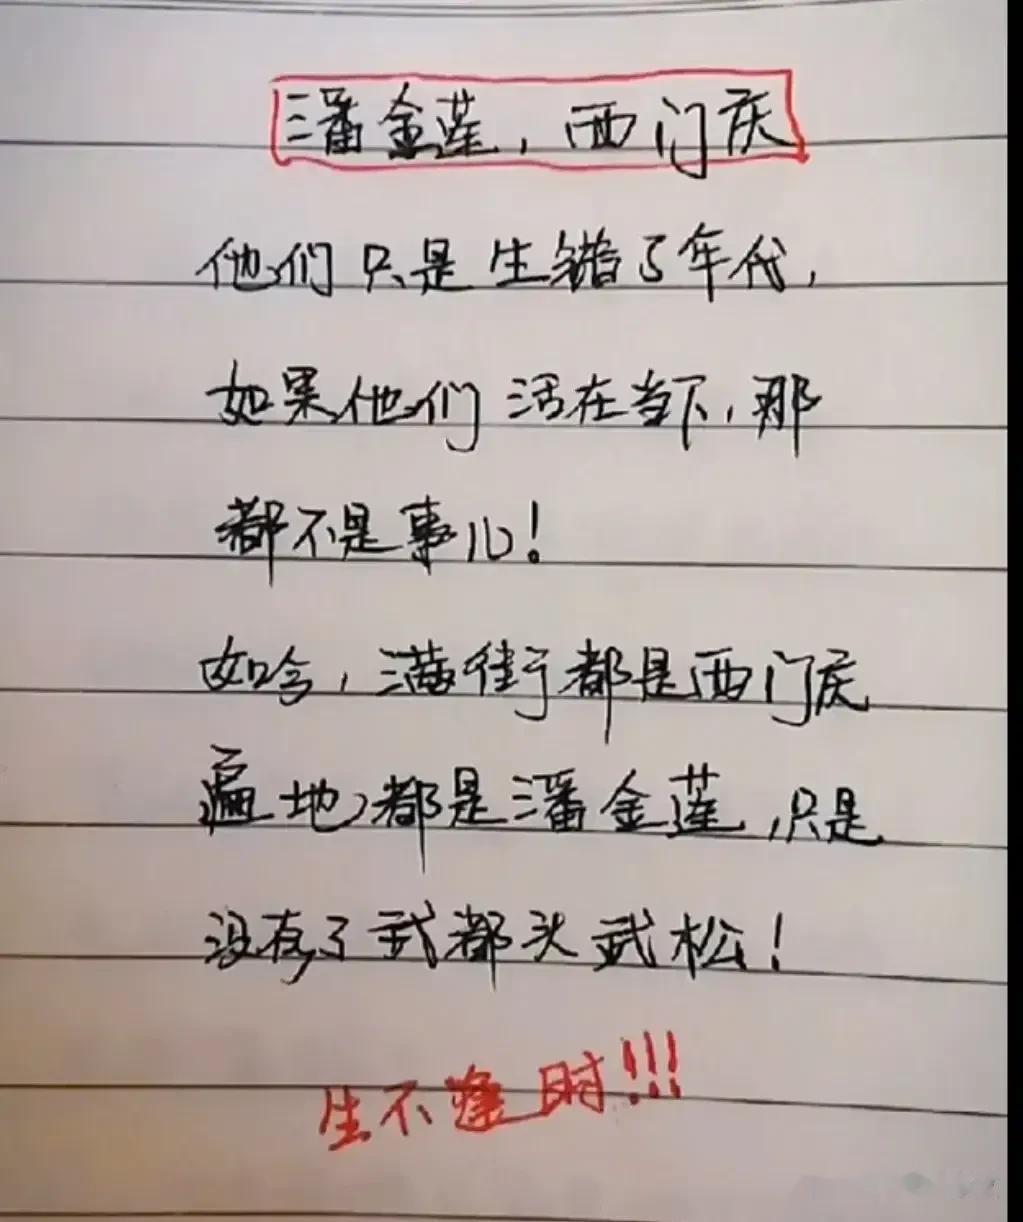 潘金莲，西门庆
他们只是生错了年代，
如果他们活在当下，那
都不是事儿！
如今，满街都是西门庆
遍地都是潘金莲，只是
没有了武都头武松！
生不逢时！！！